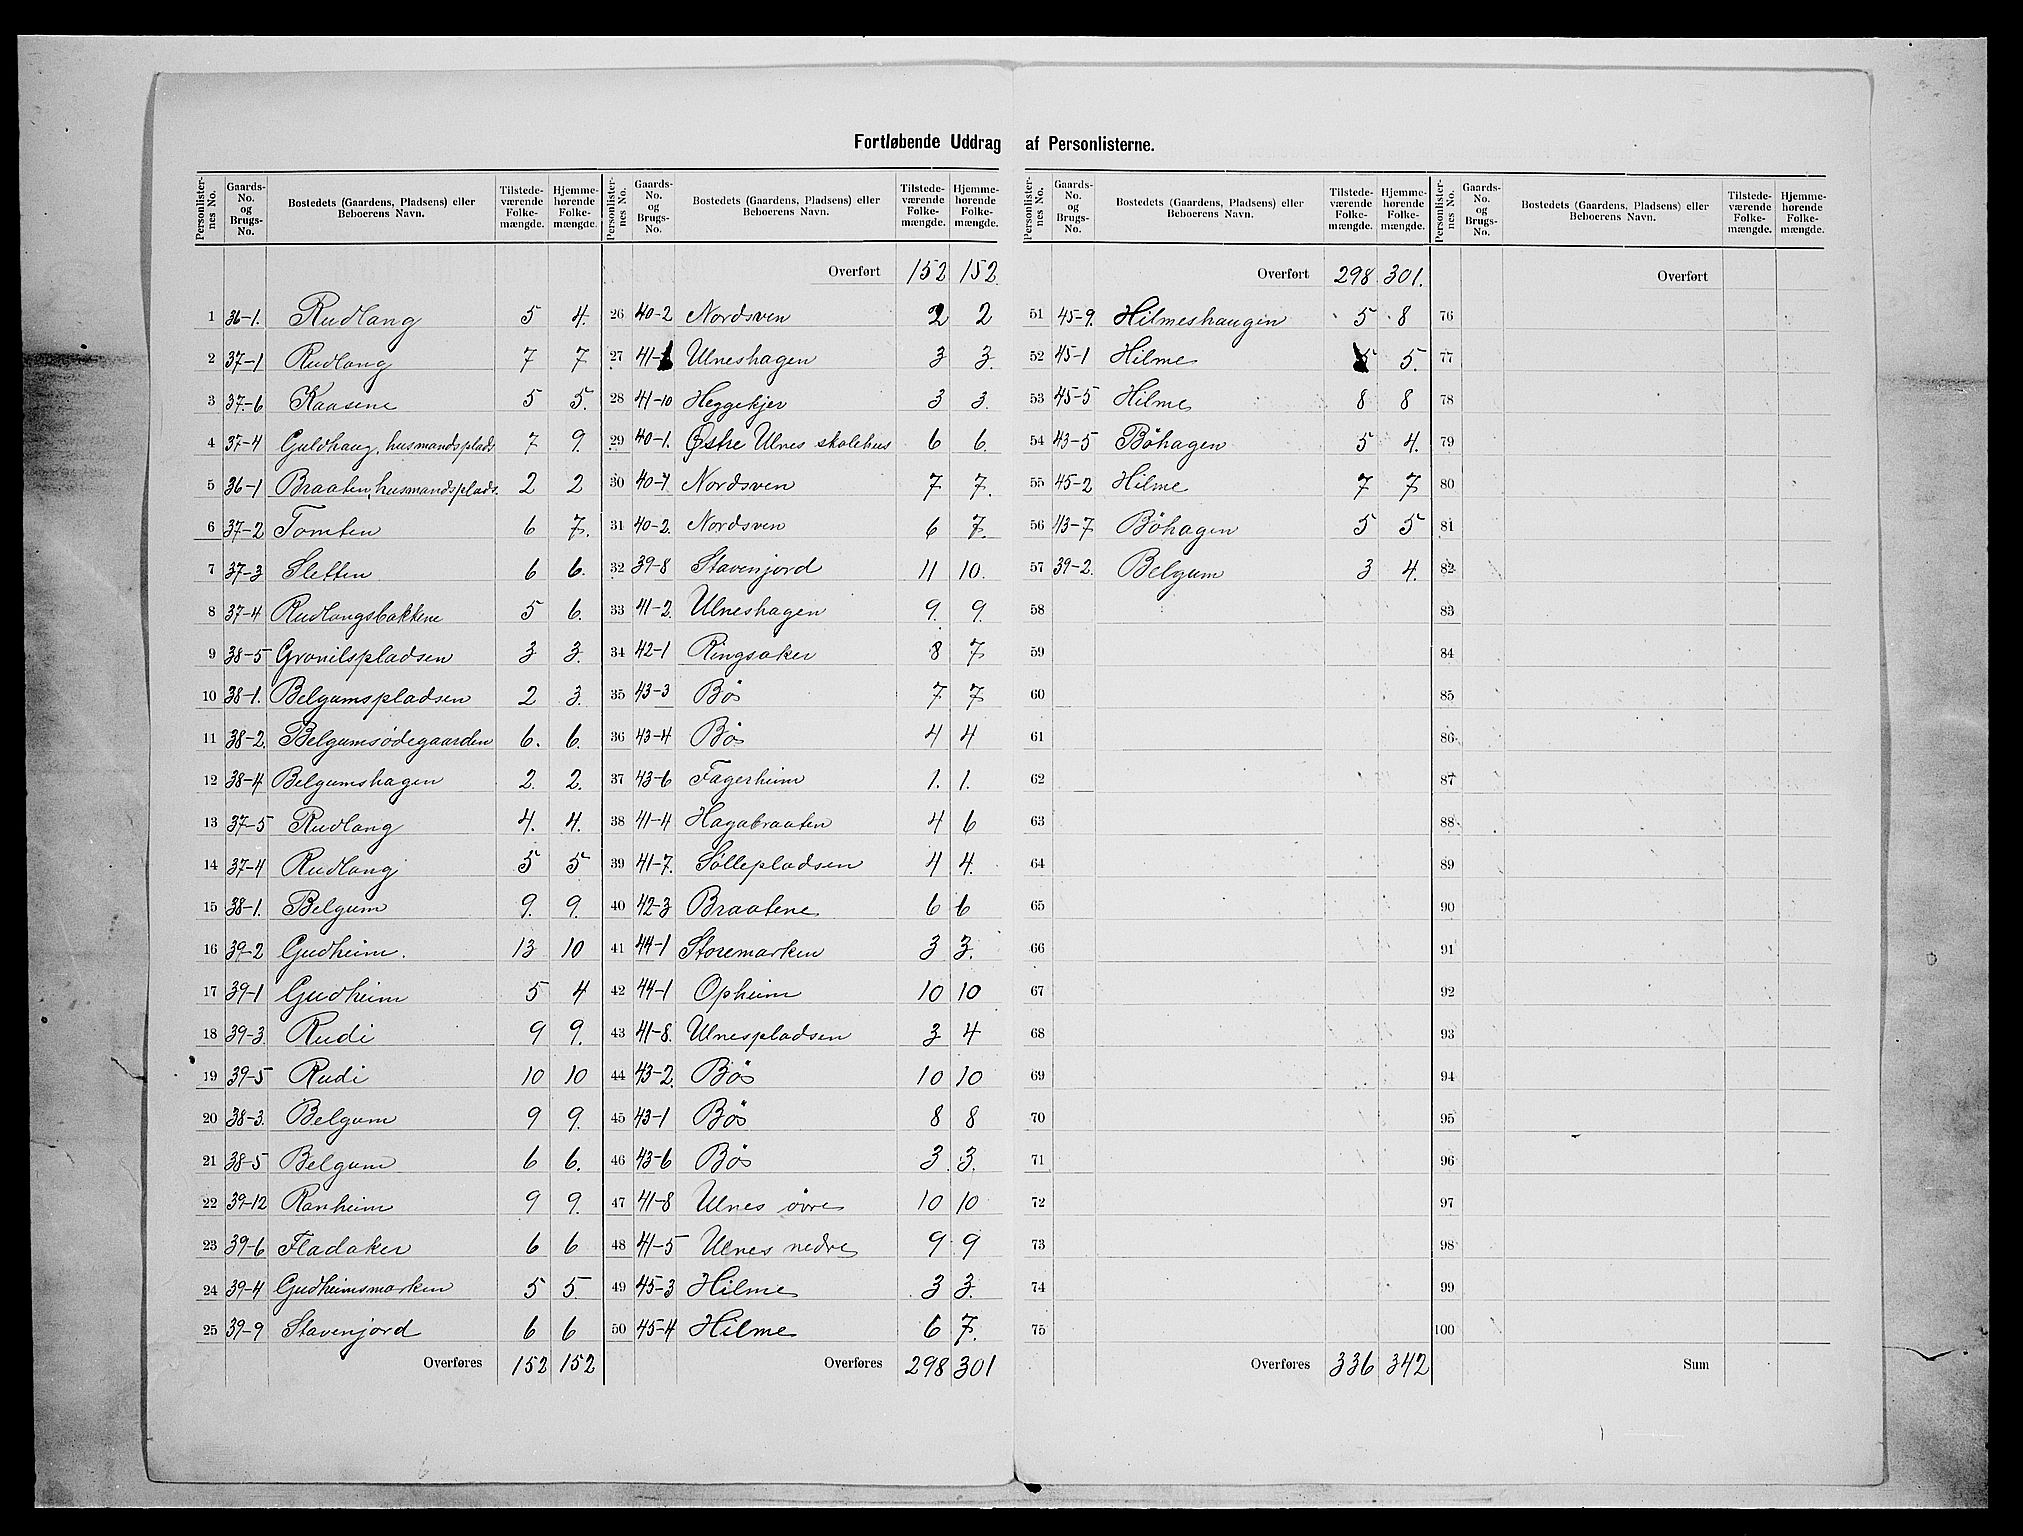 Fortløbende Uddrag af Personlisterne.
Personlisternes No. | Gaards-No. og Brugs-No. | Bostedets (Gaardens, Pladsens) eller Beboerens Navn. | Tilstedeværende Folkemængde. | Hjemmehørende Folkemængde.
1 36-1. Rudlang 5 4.
2 37-1 Rudlang 7 7
3 37-6 Kaasene 5 5.
4 37-4 Guldhaug, husmandsplads 7 9.
5 36-1 Braaten, husmandsplads. 2 2
6 37-2 Tomten 6 7.
7 37-3 Sletten 6 6.
8 37-4 Rudlangsbakkene 5 6.
9 38-5 Gronilspladsen 3 3.
10 38-1. Belgumspladsen 2 3.
11 38-2. Belgumsødegaarden 6. 6.
12 38-4 Belgumshagen 2. 2.
13 37-5 Rudlang 4. 4.
14 37-4 Rudlang 5 5
15 38-1. Belgum 9. 9.
16 39-2 Gudheim. 13 10
17 39-1 Gudheim 5 4
18 39-3. Rudi 9 9.
19 39-5 Rudi 10 10
20 38-3. Belgum 9 9.
21 38-5 Belgum 6 6.
22 39-12 Ranheim 9 9.
23 39-6 Fladaker 6 6
24 39-4 Gudheimsmarken 5 5.
25 39-9 Stavenjord 6 6
Overføres 152 152
Personlisternes No. | Gaards-No. og Brugs-No. | Bostedets (Gaardens, Pladsens) eller Beboerens Navn. | Tilstedeværende Folkemængde. | Hjemmehørende Folkemængde.
Overført 152 152.
26 40-2 Nordsven 2 2
27 41- Ulneshagen 3 3.
28 41-10 Heggekjer 3 3.
29 40-1. Østre Ulnes skolehus 6 6.
30 40-1 Nordsven 7 7.
31 40-2. Nordsven 6 7.
32 39-8 Stavenjord 11 10.
33 41-2. Ulneshagen 9. 9.
34 42-1 Ringsaker 8 7
35 43-3 Bøs 7. 7
36 43-4 Bøs 4 4
37 43-6 Fagerheim 1. 1.
38 41-4 Hagabraaten 4 6
39 41-7. Søllepladsen 4 4.
40 42-3 Braatene 6 6
41 44-1 Storemarken 3 3.
42 44-1 Opheim 10 10
43 41-8. Ulnespladsen 3 4
44 43-2. Bøs 10 10
45 43-1 Bøs 8 8
46 43-6 Bøs 3. 3.
47 41-8 Ulnes øvre 10 10
48 41-5 Ulnes nedre 9 9
49 45-3 Hilme 3 3.
50 45-4 Hilme 6 7.
Overføres 298 301
Personlisternes No. | Gaards-No. og Brugs-No. | Bostedets (Gaardens, Pladsens) eller Beboerens Navn. | Tilstedeværende Folkemængde. | Hjemmehørende Folkemængde.
Overført 298 301.
51 45-9. Hilmeshaugen 5 8
52 45-1 Hilme 5 5.
53 45-5 Hilme 8 8
54 43-5 Bøhagen 5 4.
55 45-2 Hilme 7 7
56 43-7 Bøhagen 5 5
57 39-2. Belgum 3 4.
58
59
60
61
62
63
64
65
66
67
68
69
70
71
72
73
74
75
Overføres 336 342
Personlisternes No. | Gaards-No. og Brugs-No. | Bostedets (Gaardens, Pladsens) eller Beboerens Navn. | Tilstedeværende Folkemængde. | Hjemmehørende Folkemængde.
Overført
76
77
78
79
80
81
82
83
84
85
86
87
88
89
90
91
92
93
94
95
96
97
98
99
100
Sum